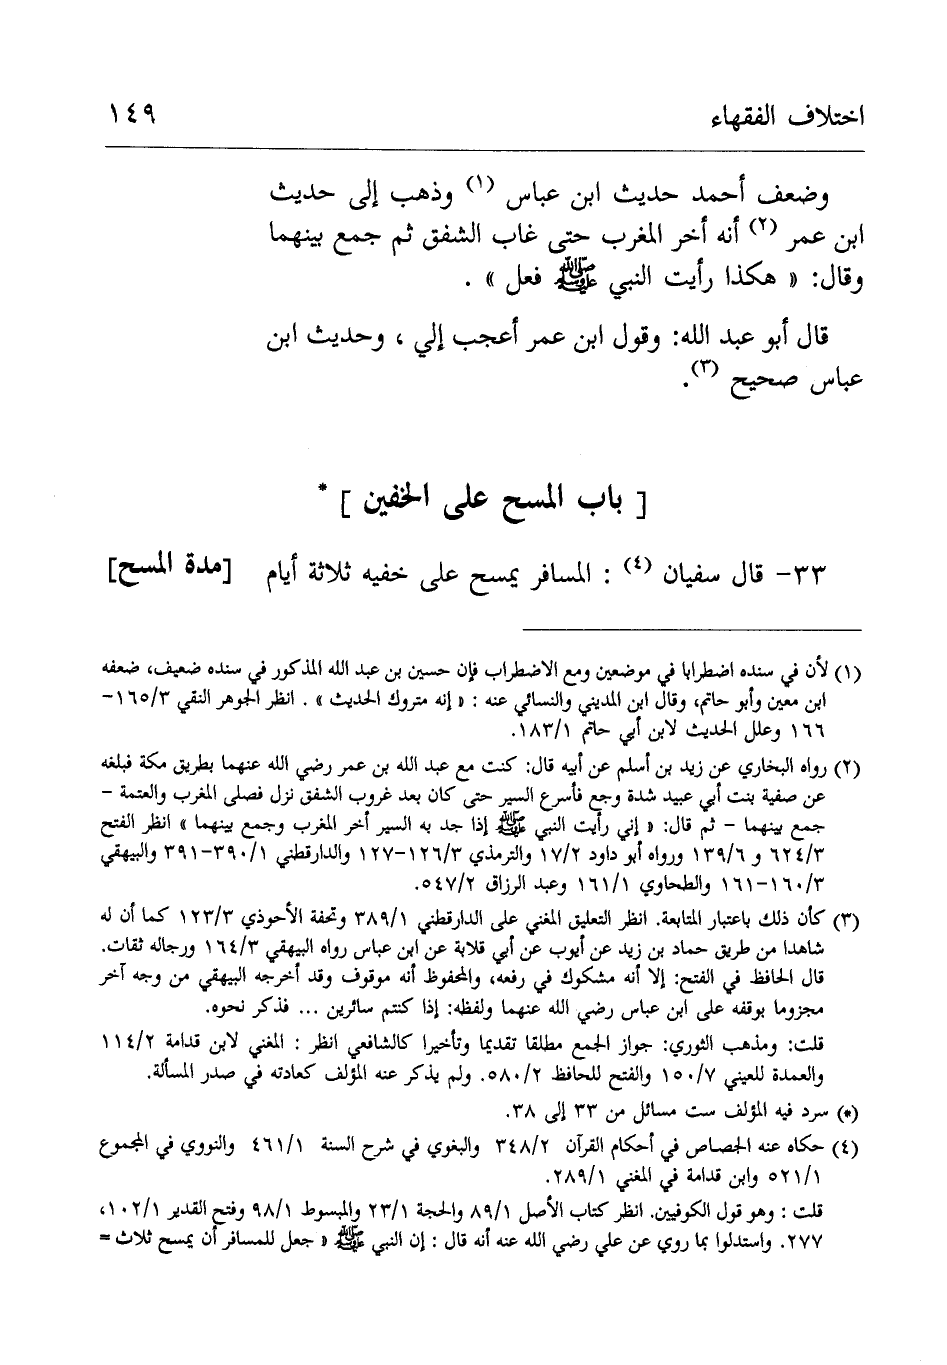 اختلاف الفقهاء ١٤٩
وضعف أحمد حديث ابن عباس (١) وذهب إلى حديث
ابن عمر (٢) أنه أخر المغرب حتى غاب الشفق ثم جمع بينهما
وقال: « هكذا رأيت النبي ﷺ فعل » .
قال أبو عبد الله: وقول ابن عمر أعجب إلي ، وحديث ابن
عباس صحيح (٣).
[ باب المسح على الخفين ] *
٣٣- قال سفيان (٤) : المسافر يمسح على خفيه ثلاثة أيام [مدة المسح]
(١) لأن في سنده اضطرابا في موضعين ومع الاضطراب فإن حسين بن عبد الله المذكور في سنده ضعيف، ضعفه
ابن معين وأبو حاتم، وقال ابن المديني والنسائي عنه : « إنه متروك الحديث » . انظر الجوهر النقي ١٦٥/٣-
١٦٦ وعلل الحديث لابن أبي حاتم ١٨٣/١.
(٢) رواه البخاري عن زيد بن أسلم عن أبيه قال: كنت مع عبد الله بن عمر رضي الله عنهما بطريق مكة فبلغه
عن صفية بنت أبي عبيد شدة وجع فأسرع السير حتى كان بعد غروب الشفق نزل فصلى المغرب والعتمة -
جمع بينهما - ثم قال: « إني رأيت النبي ﷺ إذا جد به السير أخر المغرب وجمع بينهما » انظر الفتح
٦٢٤/٣ و ١٣٩/٦ ورواه أبو داود ١٧/٢ والترمذي ١٢٦/٣-١٢٧ والدارقطني ٣٩٠/١-٣٩١ والبيهقي
١٦٠/٣-١٦١ والطحاوي ١٦١/١ وعبد الرزاق ٥٤٧/٢.
(٣) كأن ذلك باعتبار المتابعة. انظر التعليق المغني على الدارقطني ٣٨٩/١ وتحفة الأحوذي ١٢٣/٣ كما أن له
شاهدا من طريق حماد بن زيد عن أيوب عن أبي قلابة عن ابن عباس رواه البيهقي ١٦٤/٣ ورجاله ثقات.
قال الحافظ في الفتح: إلا أنه مشكوك في رفعه، والمحفوظ أنه موقوف وقد أخرجه البيهقي من وجه آخر
مجزوما بوقفه على ابن عباس رضي الله عنهما ولفظه: إذا كنتم سائرين ... فذكر نحوه.
قلت: ومذهب الثوري: جواز الجمع مطلقا تقديما وتأخيرا كالشافعي انظر : المغني لابن قدامة ١١٤/٢
والعمدة للعيني ١٥٠/٧ والفتح للحافظ ٥٨٠/٢. ولم يذكر عنه المؤلف كعادته في صدر المسألة.
(*) سرد فيه المؤلف ست مسائل من ٣٣ إلى ٣٨.
(٤) حكاه عنه الجصاص في أحكام القرآن ٣٤٨/٢ والبغوي في شرح السنة ٤٦١/١ والنووي في المجموع
٥٢١/١ وابن قدامة في المغني ٢٨٩/١.
قلت : وهو قول الكوفيين. انظر كتاب الأصل ٨٩/١ والحجة ٢٣/١ والمبسوط ٩٨/١ وفتح القدير ١٠٢/١،
٢٧٧. واستدلوا بما روي عن علي رضي الله عنه أنه قال : إن النبي ﷺ « جعل للمسافر أن يمسح ثلاث =